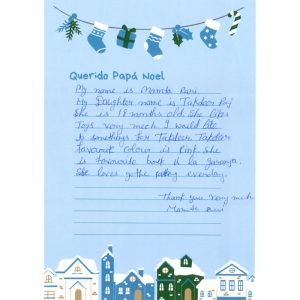 Querido Papá Noel
My name is Mamta Rani
My Daughter name is Takdeer Raj
She is 18 months old. She likes
Toys very much I would like
to somethings for Takdeer Takdeer
favourite colour is Pink She
is favourite book is la
She loves go the everyday.
Thank you very much
Mamta Rani